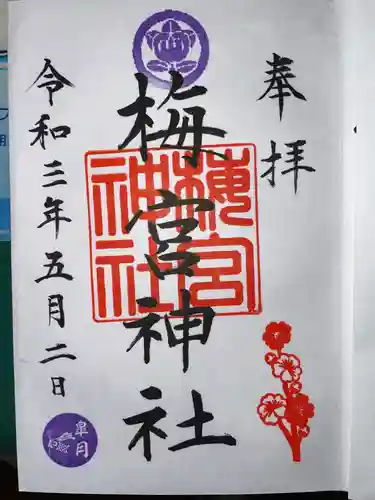 奉拝
梅宮神社
梅宮
神社
令和三年五月二日
皐月